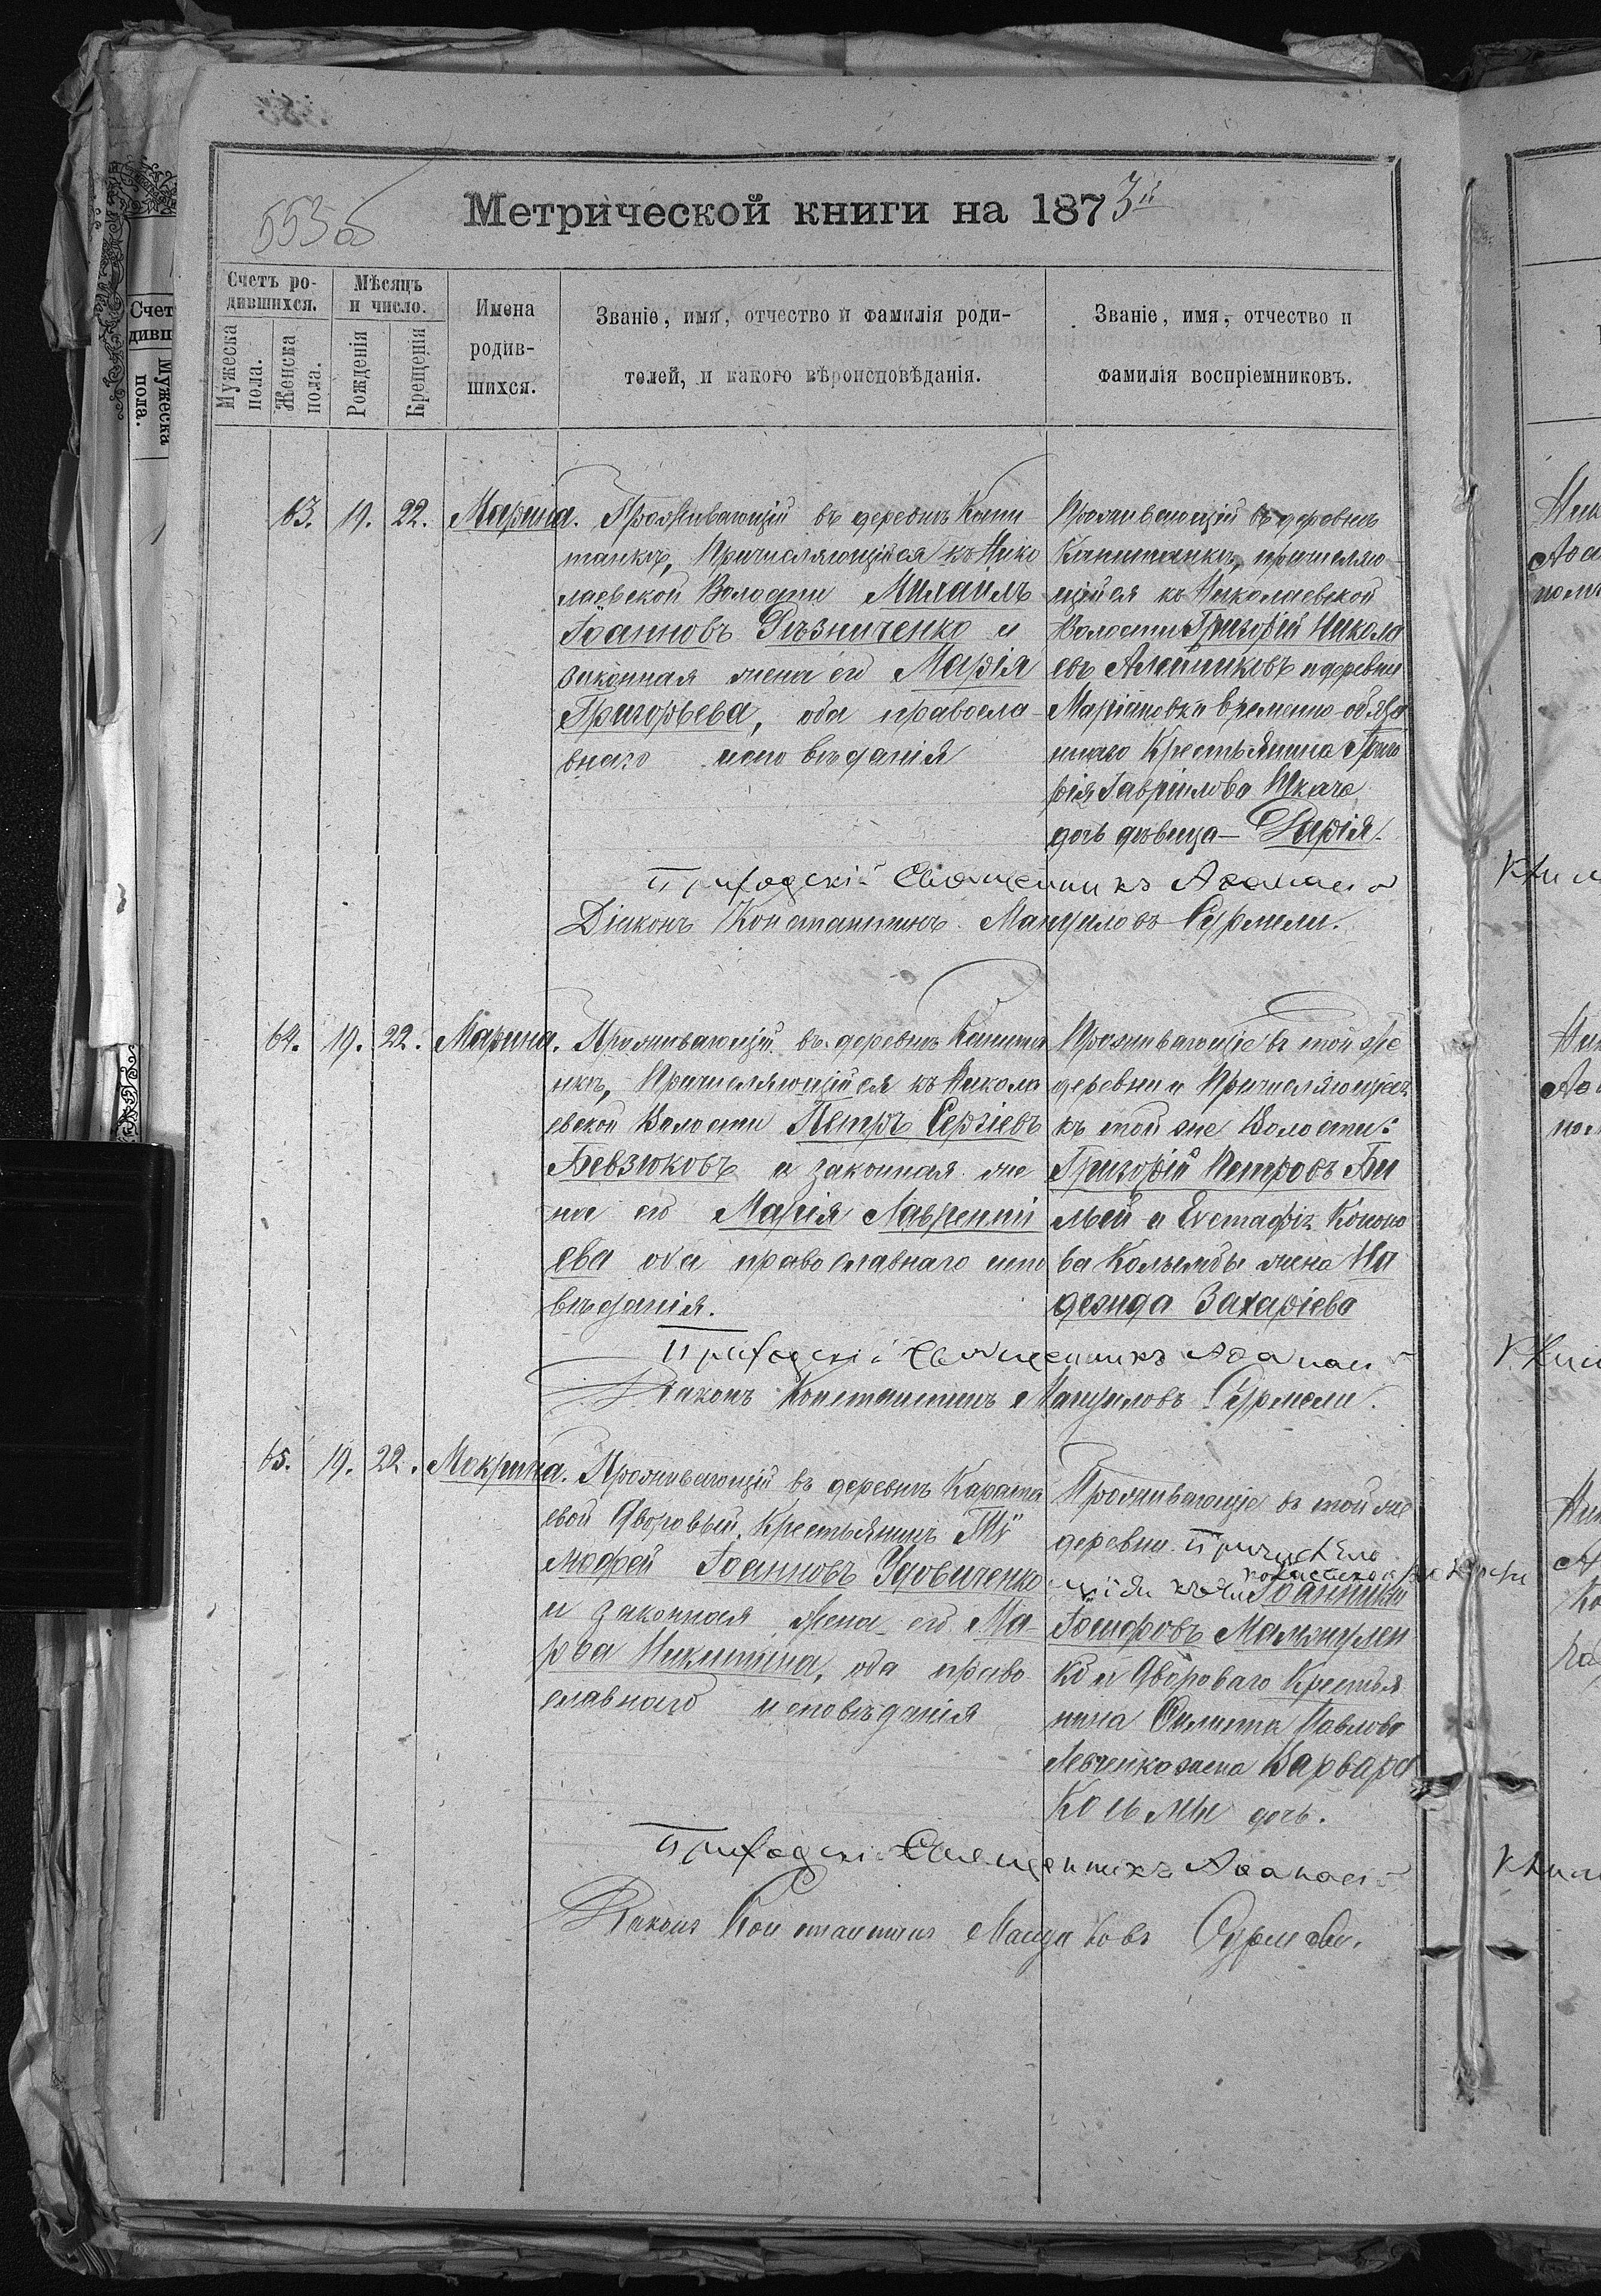 553 об
Метрической книги на 1873й
Счетъ ро-
дившихся.
Мѣсяцъ
и число.
Имена
родив-
шихся.
Званіе, имя, отчество и фамилія роди-
телей, и какого вѣроисповѣданія.
Званіе, имя, отчество и
фамилія воспріемниковъ.
Мужеска
пола.
Женска
пола.
Рожденія
Крещенія
63. 19. 22. Марина.
Проживающій въ деревнѣ Капи
танкѣ, Причисляющійся къ Нико
лаевской Волости Михаилъ
Іоанновъ Рѣзниченко и
законная жена его Марія
Григорьева, оба правосла-
внаго исповѣданія
Проживающій въ деревнѣ
Капитанкѣ, причисляю-
щійся къ Николаевской
Волости Григорій Никола
евъ Алейниковъ и деревни
Маріановки временно-обяза
ннаго Крестьянина Григо
рія Гавріилова Ткача
дочь дѣвица – Дарія.
Приходскій Священникъ Аѳанасій
Діаконъ Константинъ Мануиловъ Сурмели.
64. 19. 22. Марина.
Проживающій въ деревнѣ Капита
нкѣ, Причисляющійся къ Никола
евской Волости Петръ Сергіевъ
Бевзюковъ и законная же
на его Марія Лавренті
ева оба православнаго испо
вѣданія.
Проживающіе въ той же
деревни и Причисляющіеся
къ той же Волости:
Григорій Петровъ
и Евстафія Конона
ва Колымбы жена На
дежда Захаріева
Приходскій Священникъ Аѳанасій
Діаконъ Константинъ Мануиловъ Сурмели.
65. 19. 22. Макрина.
Проживающій въ деревнѣ Карата
евой Дворовый Крестьянинъ Ти
моѳей Іоанновъ Удовиченко
и законная жена его Ма-
рѳа Никитина, оба право
славнаго исповѣданія
Проживающіе въ той же
деревни Причисляю
щійся къ
Іоанникій
Іосифовъ
ко и Двороваго Крестья
нина Филиппа Павлова
Левченка жена Варвара
Козьмы дочь.
Приходскій Священникъ Аѳанасій
Діаконъ Константинъ Мануиловъ Сурмели.
Счет
дивш
Мужеска
пола.